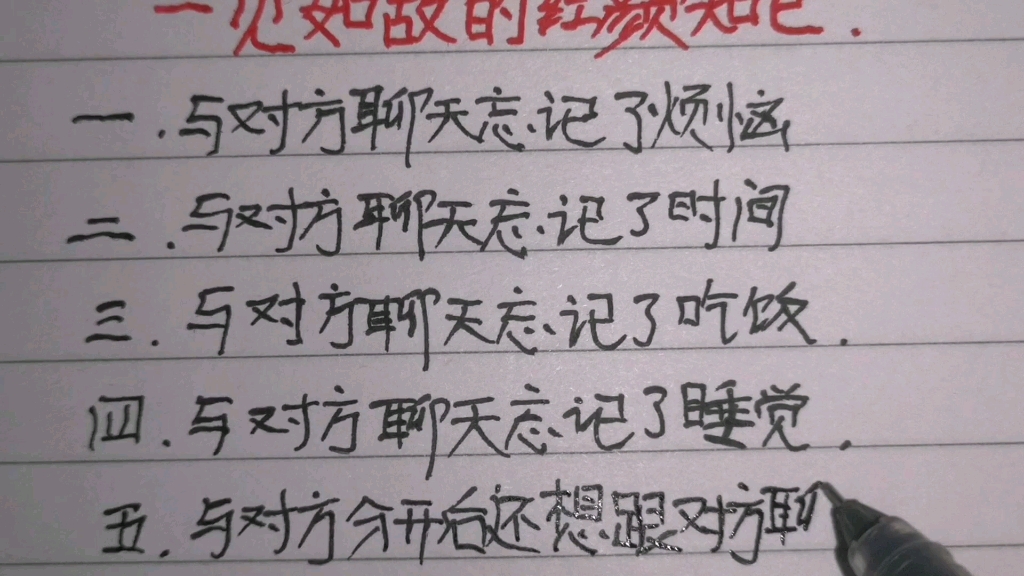 一见如故的红颜知己.
一.与对方聊天忘记了烦恼
二.与对方聊天忘记了时间
三.与对方聊天忘记了吃饭.
四.与对方聊天忘记了睡觉.
五.与对方分开后还想跟对方聊